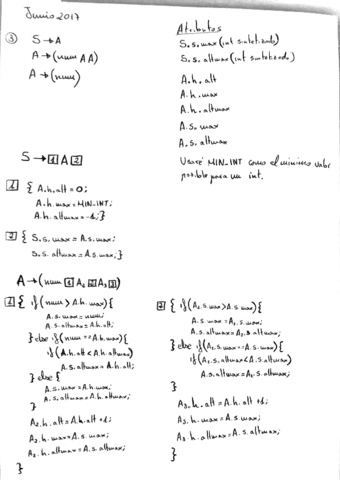 Junio 2017
③ S → A
A → (num AA)
A → (num)
Atributos
S.s.max (int sintetizado)
S.s.altmax (int sintetizado)
A.h.alt
A.h.max
A.h.altmax
A.s.max
A.s.altmax
Usaré MIN_INT como el mínimo valor
posible para un int.
S → 1 A 2
1 { A.h.alt = 0;
A.h.max = MIN_INT;
A.h.altmax = -1; }
2 { S.s.max = A.s.max;
S.s.altmax = A.s.max; }
A → (num 1 A₁ 2 A₂ 3)
1 { if (num > A.h.max) {
A.s.max = num;
A.s.altmax = A.h.alt;
} else if (num == A.h.max) {
if (A.h.alt < A.h.altmax)
A.s.altmax = A.h.alt;
} else {
A.s.max = A.h.max;
A.s.altmax = A.h.altmax;
}
A₁.h.alt = A.h.alt + 1;
A₁.h.max = A.s.max;
A₁.h.altmax = A.s.altmax;
}
2 { if (A₁.s.max > A.s.max) {
A.s.max = A₁.s.max;
A.s.altmax = A₁.s.altmax;
} else if (A₁.s.max == A.s.max) {
if (A₁.s.altmax < A.s.altmax)
A.s.altmax = A₁.s.altmax;
}
A₂.h.alt = A.h.alt + 1;
A₂.h.max = A.s.max;
A₂.h.altmax = A.s.altmax;
}